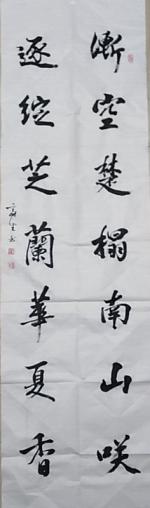 漸空楚榻南山咲
逐綻芝蘭華夏香